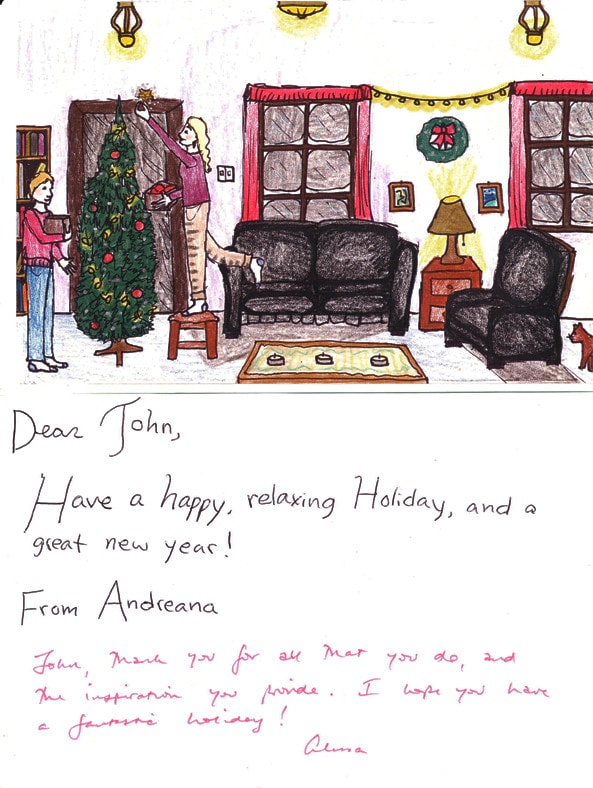 Dear John,
Have a happy, relaxing Holiday, and a
great new year!
From Andreana
John, Thank you for all that you do, and
the inspiration you provide. I hope you have
a fantastic holiday!